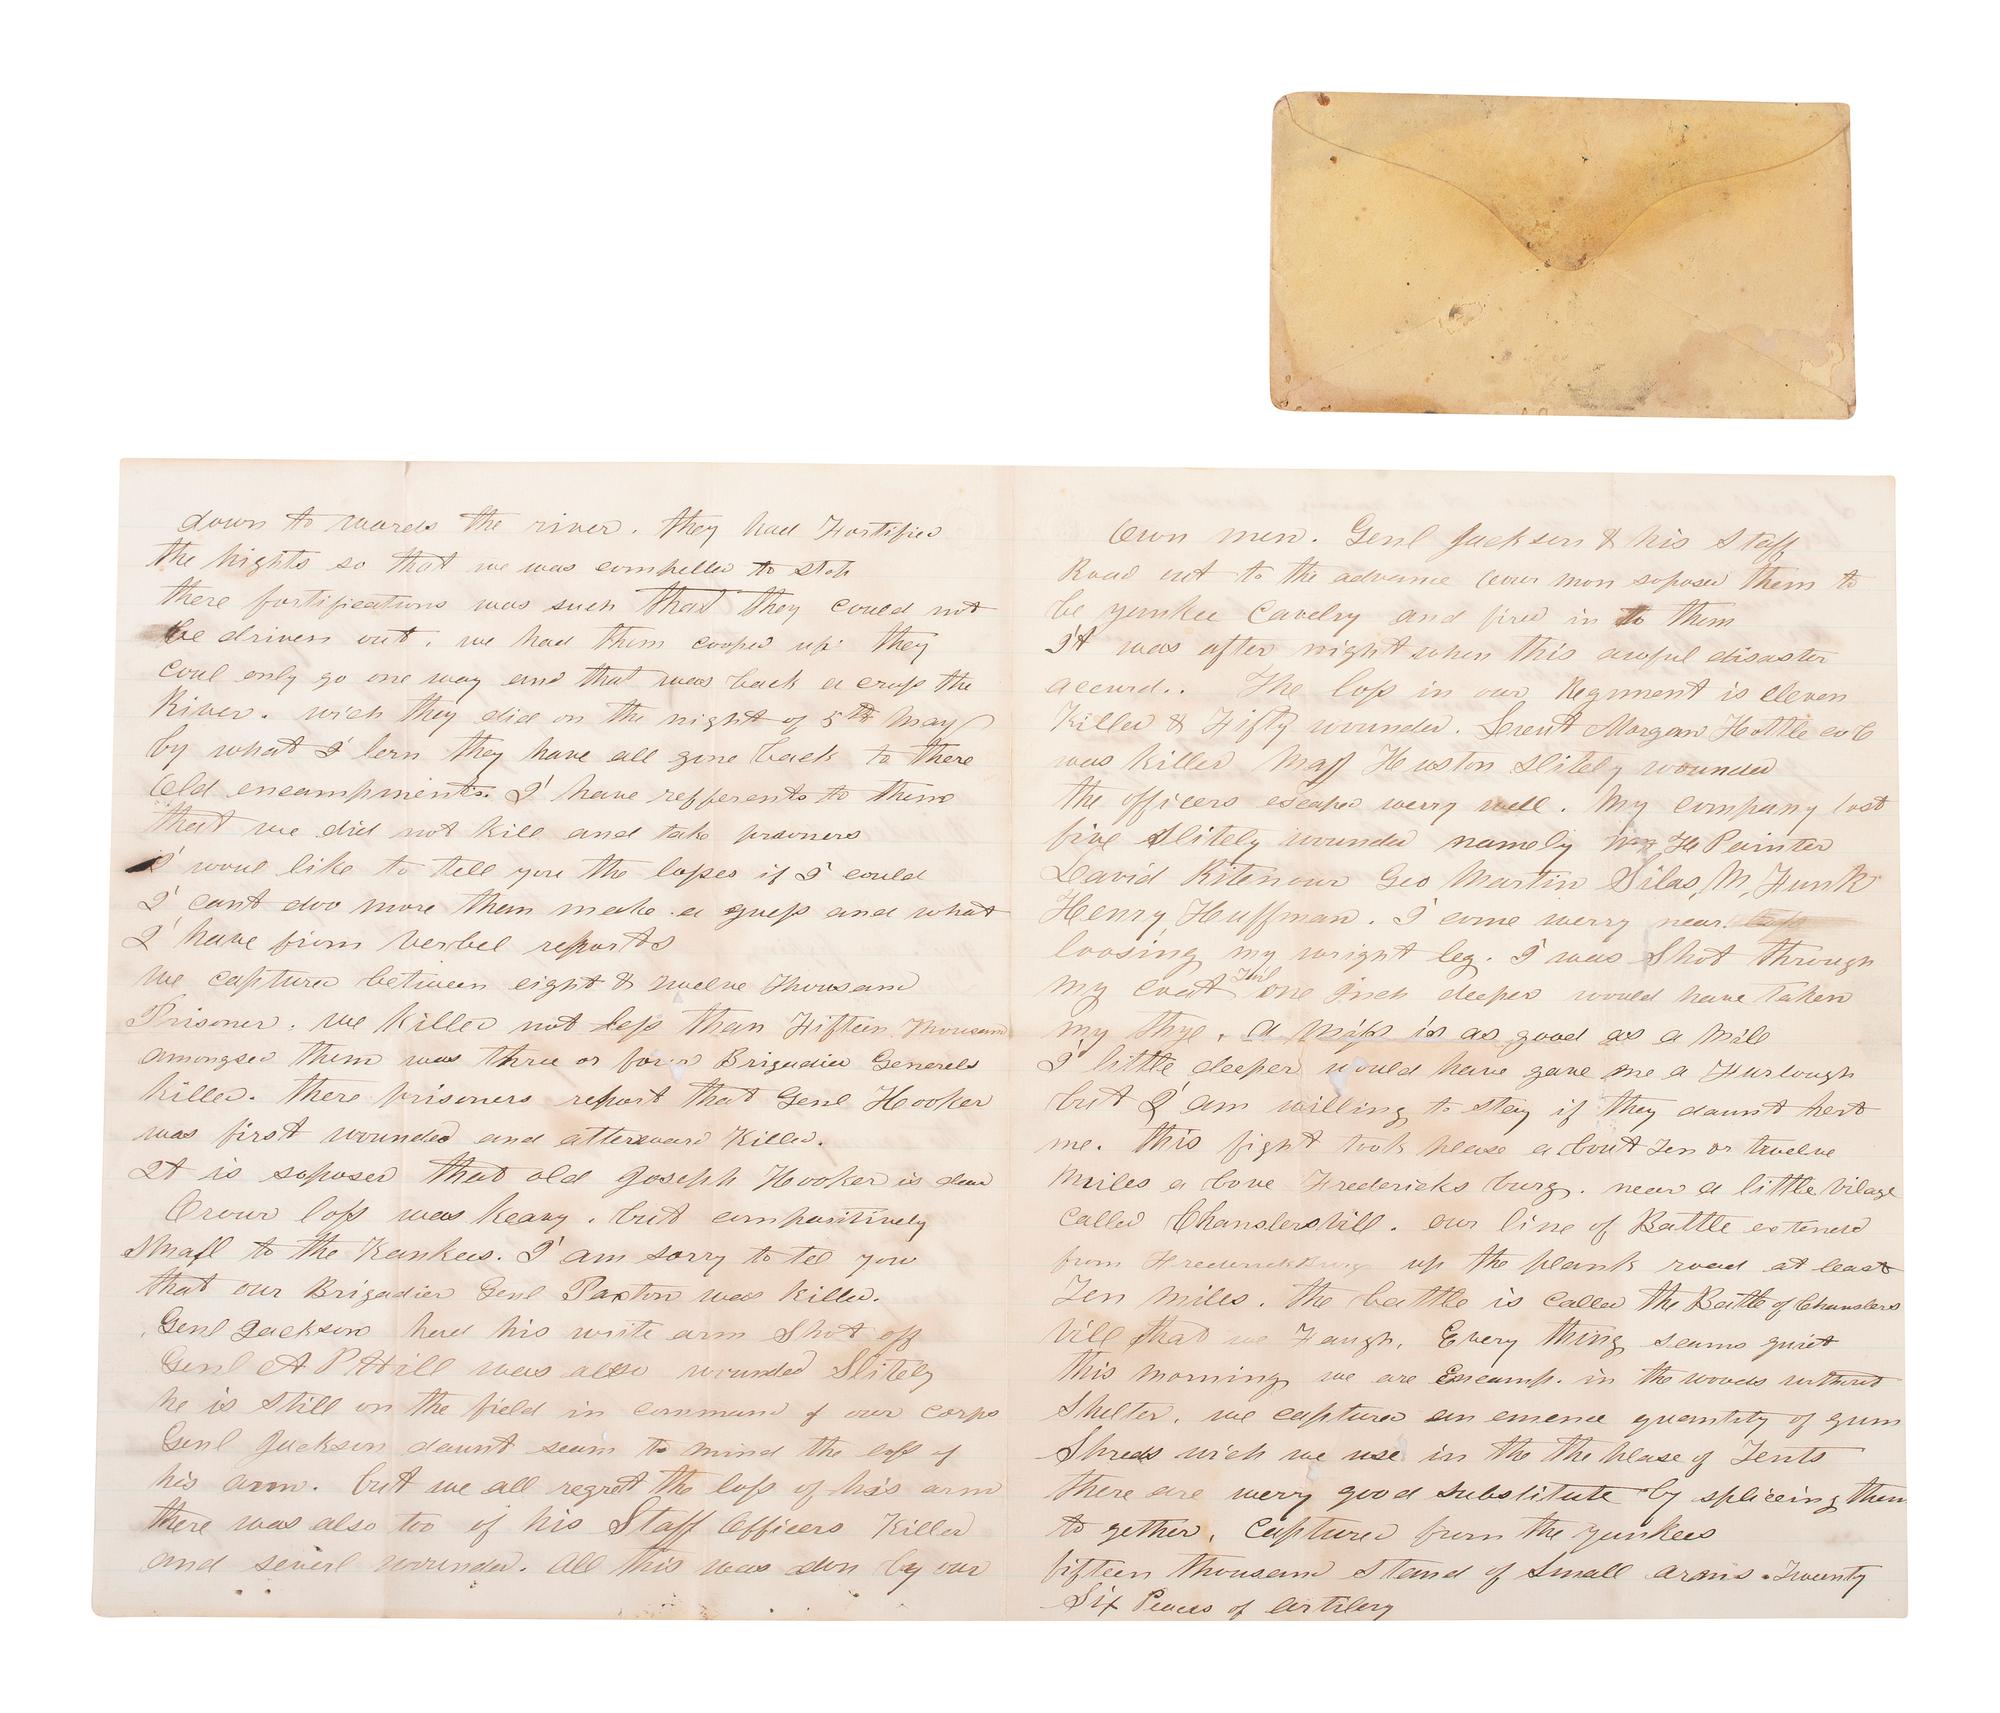 down to wards the river. they had Fortified
the hights so that we was compelled to stop
there fortifications was such that they could not
be driven out. we had them cooped up they
coul only go one way and that was back a cross the
River. wich they did on the night of 5th May
by what I lern they have all gone back to there
Old encampments. I have refferents to them
that we did not kill and take prisoners
I woul like to tell you the losses if I could
I cant doo more than make a guess and what
I have from verbel reports
we captured between eight & twelve Thousand
Prisoner. we killed not less than Fifteen Thousand
amongsed them was three or four Brigadier Generels
killed. there prisoners report that Genl Hooker
was first wounded and atterward Killed.
It is soposed that old Joseph Hooker is dead
Orour loss was heavy. but compasitively
Small to the Yankees. I am sorry to tel you
that our Brigadier Genl Paxton was killed.
Genl Jackson hed his write arm Shot off
Genl A P Hill was also wounded Slitely
he is still on the field in command of our corps
Genl Jackson daunt seam to mind the loss of
his arm. but we all regret the loss of his arm
there was also too of his Staff Officers Killed
and severl wounded. All this was don by our
Own men. Genl Jackson & his Staff
Road out to the advance our men soposed them to
be yankee Cavelry and fired in to them
It was after night when this awful disaster
accurd.. The loss in our Regiment is eleven
Killed & Fifty wounded. Lieut Morgan Hottle co C
was killed Maj Huston Slitely wounded
the officers escaped werry well. My company lost
five Slitely wounded namely Wm H Painter
David Ritenour Geo Martin Silas, M, Funk
Henry, Huffman. I come werry near
loosing my wright leg. I was Shot through
my coat Tail one Inch deeper would have taken
my thye. a miss is as good as a mile
I little deeper would have gave me a Furlough
but I am willing to stay if they daunt hert
me. this fight took please a bout Ten or twelve
Miles a bove Fredericks burg. near a little Vilage
called Chanslersvill. our line of Battle extend
from Fredericksburg up the plank road at least
Ten miles. the battle is called the Battle of Chanslers
vill that we Faugh. Every thing seams quiet
this morning we are Encamp. in the woods without
Shelter. we captured an emence quantity of gum
Shreds wich we use in the the plase of Tents
there are werry good substitute by spliceing them
to gether. Captured from the yankees
fifteen thousand Stand of Small arms. Twenty
Six Peaces of Artilery